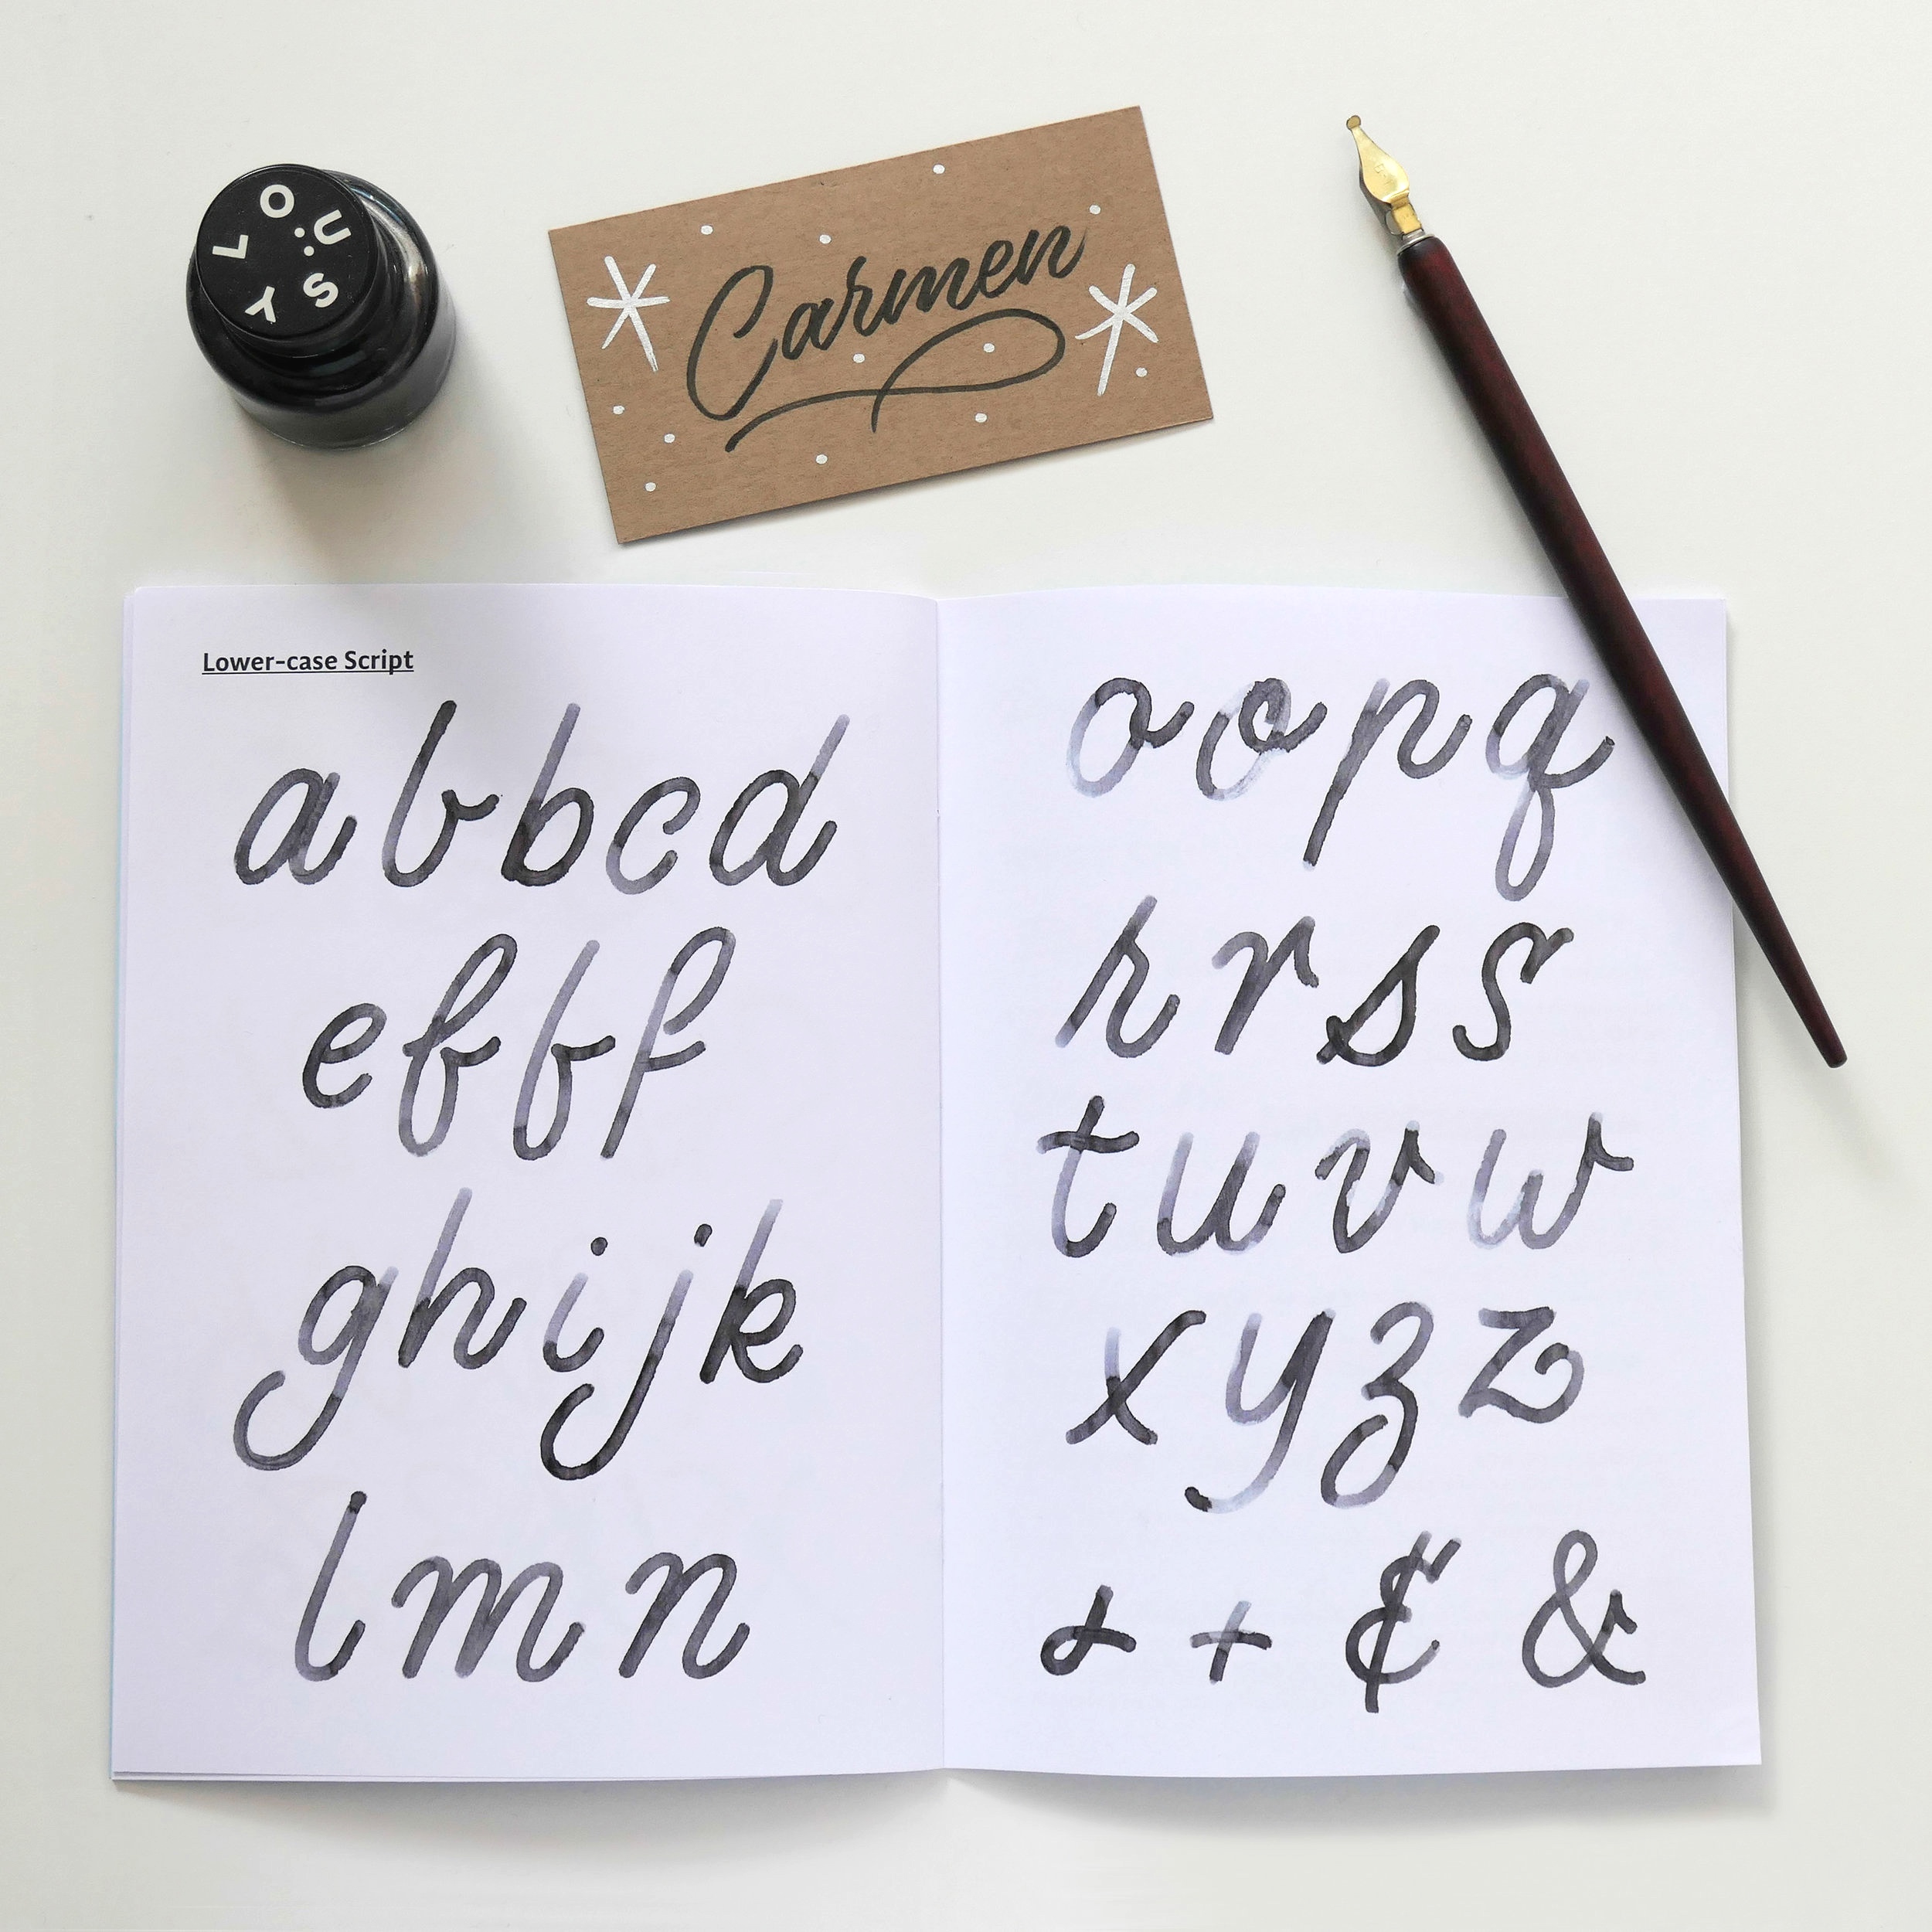 LOUISY
Carmen
Lower-case Script
a b b c d
e f f f
g h i j k
l m n
o o p q
r r s s
t u v w
x y z z
+ ¢ &